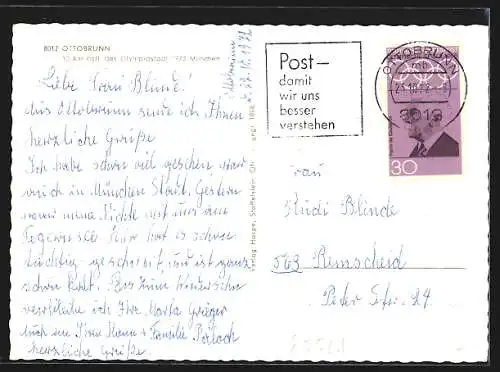 8012 OTTOBRUNN
10 km östl. der Olympiastadt 1972 München
Ottobrunn
Liebe Frau Blinde!
Aus Ottobrunn sende ich Ihnen
herzliche Grüße
Ich habe schon viel gesehen war
auch in München Stadt. Gestern
waren meine Nichte mit uns am
Tegernsee hat es schon
tüchtig geschneit, und ist ganz
schön kalt. Bis zum Wiedersehn
verbleibe ich Ihre Marta
auch an Ihren Mann + Familie
herzliche Grüße.
Verlag: Hoeper, Staffelstein
Post –
damit
wir uns
besser
verstehen
OTTOBRUNN
8012
30
Frau
Rudi Blinde
563 Remscheid
Peter Str. 24